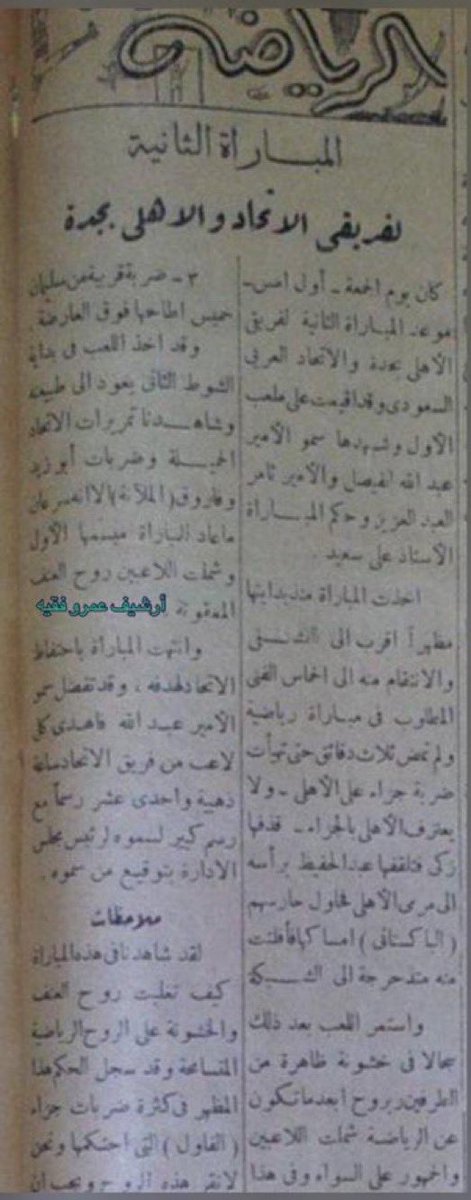 الرياضة
المباراة الثانية
لفريقي الاتحاد والاهلى بجدة
كان يوم الجمعة - أول امس -
موعد المباراة الثانية لفريق
الأهلى بجدة والاتحاد العربى
السعودى وقد اقيمت على ملعب
الأول وشهدها سمو الأمير
عبد الله الفيصل والأمير ثامر
العبد العزيز وحكم المباراة
الأستاذ على سعيد .
اخذت المباراة منذ بدايتها
مظهراً اقرب الى التشفى
والانتقام منه الى الحماس الفنى
المطلوب فى مباراة رياضية
ولم تمض ثلاث دقائق حتى تهيأت
ضربة جزاء على الأهلى - ولا
يعترف الأهلى بالجزاء - قذفها
زكى فتلقفها عبد الحفيظ برأسه
الى مرمى الأهلى فحاول حارسهم
(الباكستانى) امساكها فأفلتت
منه متدحرجة الى الشبكة
واستمر اللعب بعد ذلك
سجالا فى خشونة ظاهرة من
الطرفين بروح ابعد ما تكون
عن الرياضة شملت اللاعبين
والجمهور على السواء وفى هذا
٣ - ضربة قريبة من سليمان
خميس اطاحها فوق العارضة
وقد اخذ اللعب فى بداية
الشوط الثانى يعود الى طبيعته
وشاهدنا تمريرات الاتحاد
الجميلة وضربات أبو زيد
وفاروق (الملآنة) الا انه سرعان
ما عاد للمباراة ميسمها الأول
وشملت اللاعبين روح العنف
الممقوتة
أرشيف عمرو فقيه
وانتهت المباراة باحتفاظ
الاتحاد لهدفه ، وقد تفضل سمو
الأمير عبد الله فأهدى كل
لاعب من فريق الاتحاد ساعة
ذهبية واحدى عشر رسماً مع
رسم كبير لسموه لرئيس مجلس
الادارة بتوقيع من سموه .
ملاحظات
لقد شاهدنا فى هذه المباراة
كيف تغلبت روح العنف
والخشونة على الروح الرياضية
المتسامحة وقد سجل الحكم هذا
المظهر فى كثرة ضربات جزاء
(الفاول) التى احتكمها ونحن
لا نقر هذه الروح ويجب ان